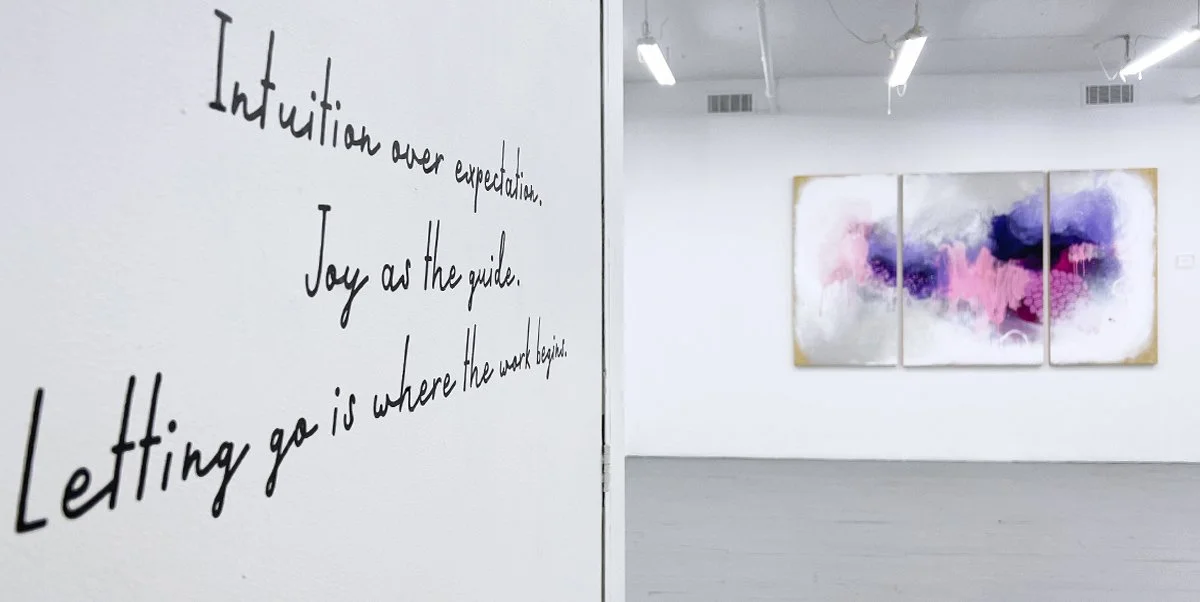 Intuition over expectation.
Joy as the guide.
Letting go is where the work begins.